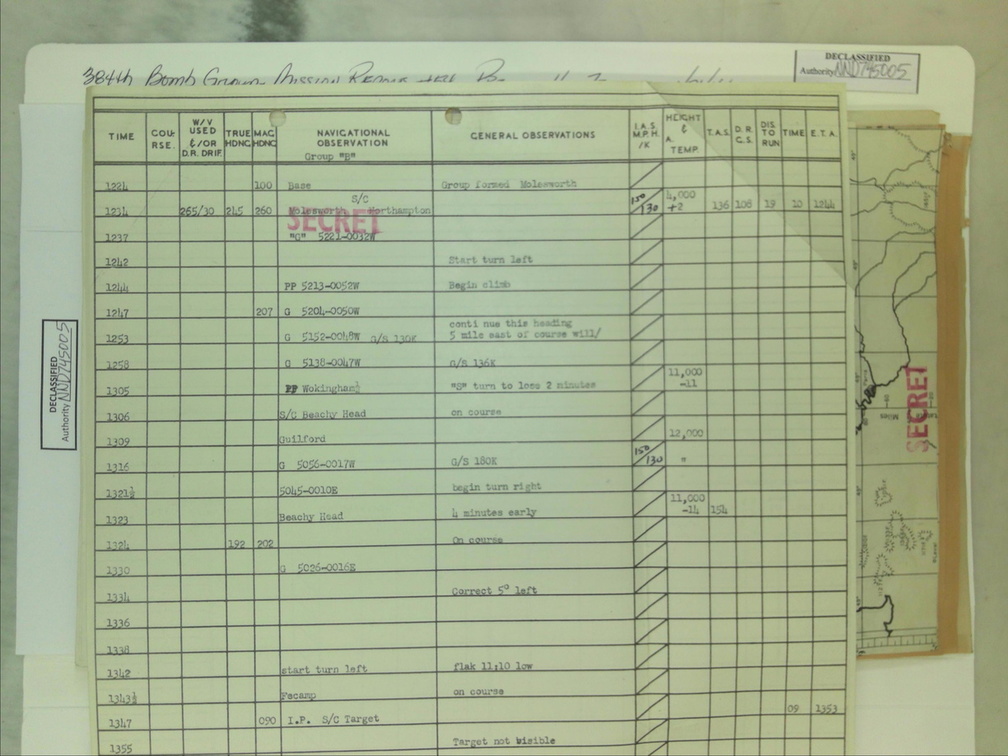 384th Bomb Group Mission
DECLASSIFIED
Authority NND745005
TIME COU- RSE. W/V USED &/OR D.R. DRIF. TRUE HDNG MAG HDNG NAVIGATIONAL OBSERVATION GENERAL OBSERVATIONS I.A.S. M.P.H. /K HEIGHT & A. TEMP. T.A.S. D.R. G.S. DIS. TO RUN TIME E.T.A.
Group "B"
1224 100 Base Group formed Molesworth
S/C
1234 265/30 245 260 Molesworth Northampton 150/130 4,000 +2 136 108 19 10 1244
SECRET
1237 "G" 5221-0032W
1242 Start turn left
1244 PP 5213-0052W Begin climb
1247 207 G 5204-0050W
conti nue this heading
1253 G 5152-0048W G/S 130K 5 mile east of course will/
1258 G 5138-0047W G/S 136K
1305 PP Wokingham½ "S" turn to loss 2 minutes 11,000 -11
1306 S/C Beachy Head on course
1309 Guilford 12,000
1316 G 5056-0017W G/S 180K 150/130 "
1321½ 5045-0010E begin turn right
1323 Beachy Head 4 minutes early 11,000 -14 154
1324 192 202 On course
1330 G 5026-0016E
1334 Correct 5° left
1336
1338
1342 start turn left flak 11;10 low
1343½ Fecamp on course
1347 090 I.P. S/C Target 09 1353
1355 Target not visible
DECLASSIFIED
Authority NND745005
SECRET
Miles